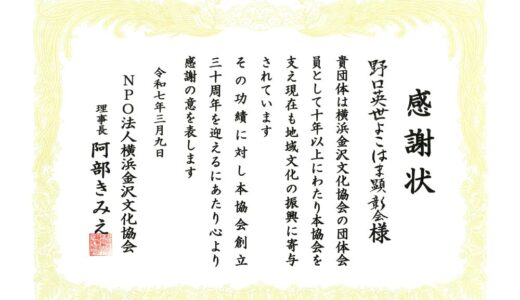 感謝状
野口英世よこはま顕彰会様
貴団体は横浜金沢文化協会の団体会
員として十年以上にわたり本協会を
支え現在も地域文化の振興に寄与
されています
その功績に対し本協会創立
三十周年を迎えるにあたり心より
感謝の意を表します
令和七年三月九日
NPO法人横浜金沢文化協会
理事長 阿部きみえ